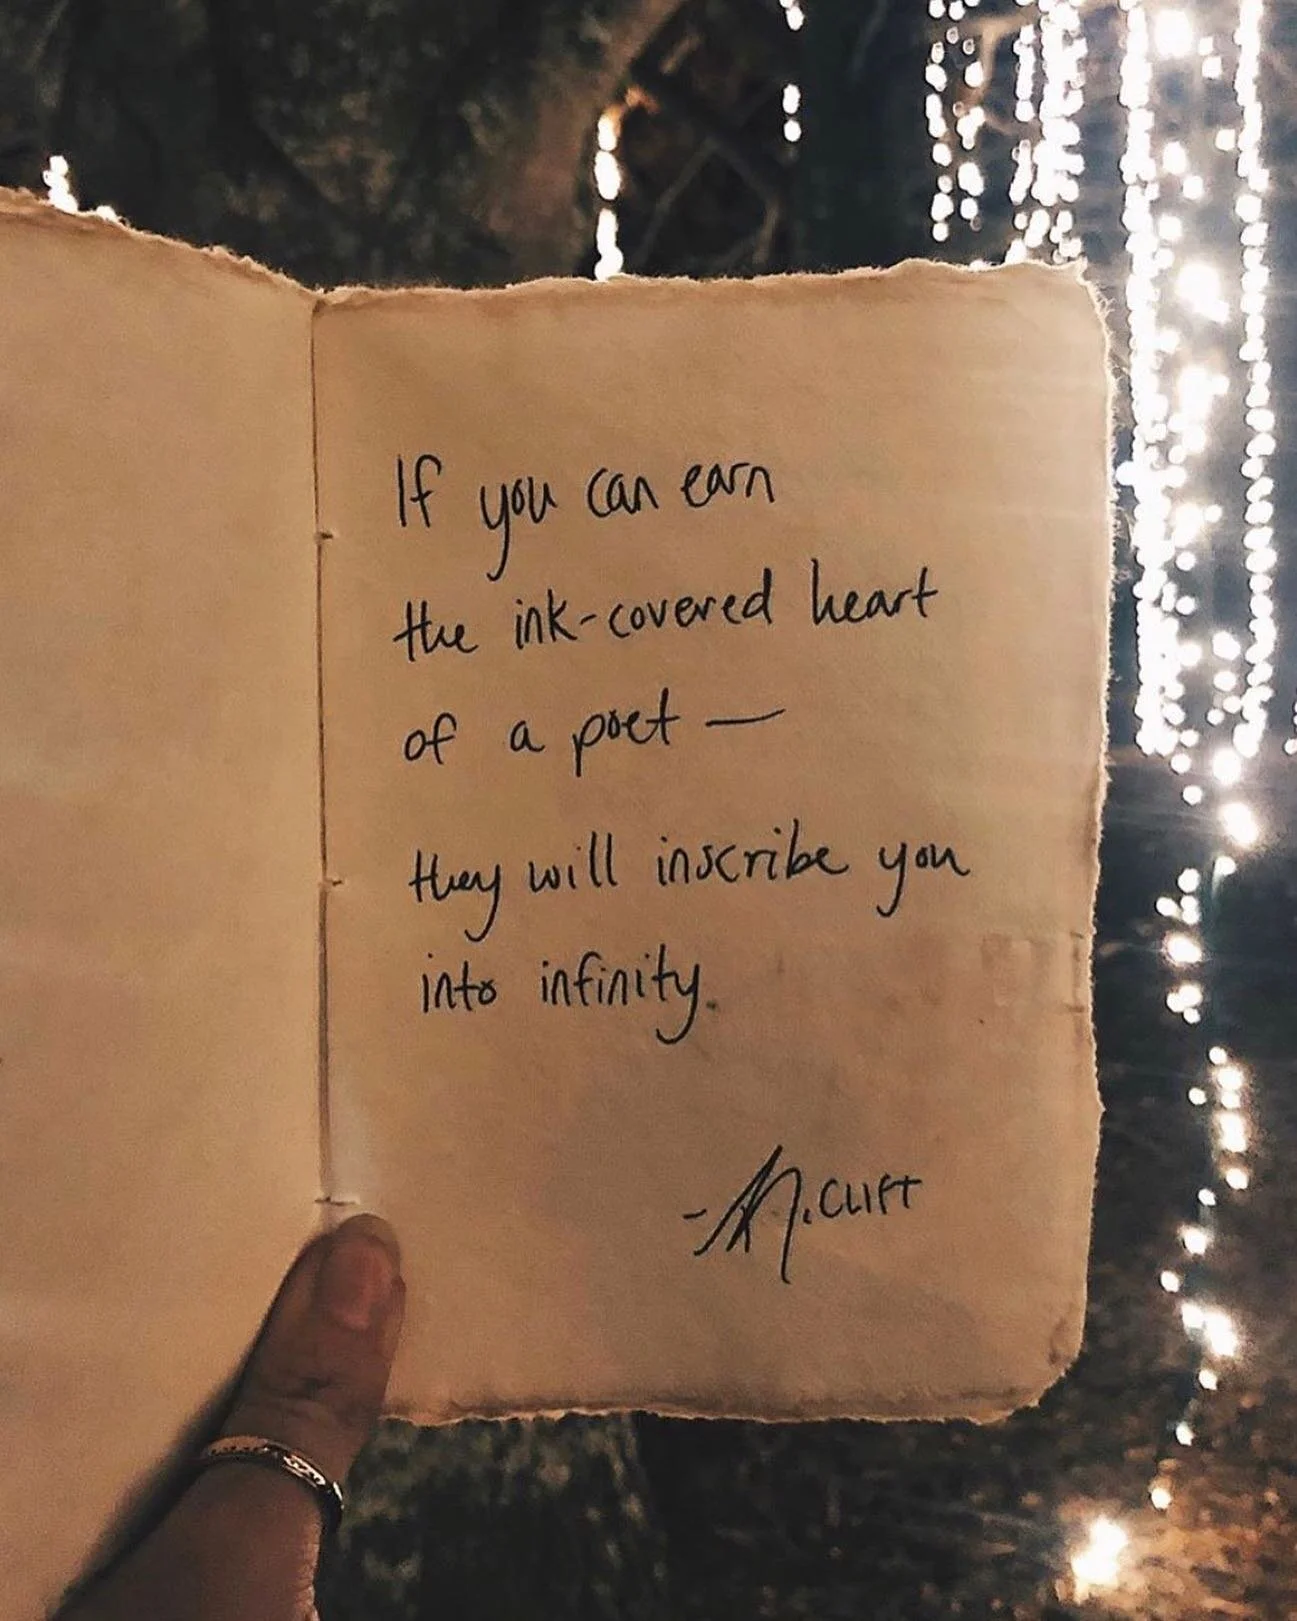 If you can earn
the ink-covered heart
of a poet —
they will inscribe you
into infinity.
- M. CLIFT